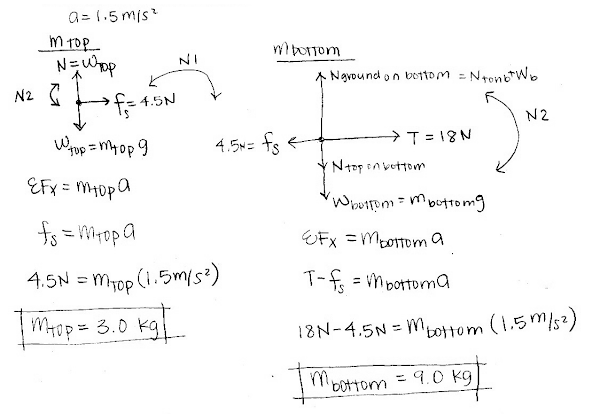 a = 1.5 m/s²
m top
N = Wtop
N1
N2
fs = 4.5N
Wtop = mtop g
ΣFx = mtop a
fs = mtop a
4.5N = mtop (1.5 m/s²)
mtop = 3.0 kg
mbottom
Nground on bottom = Ntonb + Wb
N2
4.5N = fs
T = 18N
Ntop on bottom
Wbottom = mbottom g
ΣFx = mbottom a
T - fs = mbottom a
18N - 4.5N = mbottom (1.5 m/s²)
mbottom = 9.0 kg